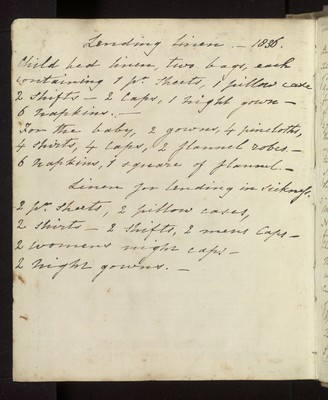 Lending linen. — 1836.
Child bed linen, two bags, each
containing 1 pr. sheets, 1 pillow case
2 shifts — 2 caps, 1 night gown —
6 napkins. —
For the baby, 2 gowns, 4 pincloths,
4 shirts, 4 caps, 2 flannel robes —
6 napkins, 1 square of flannel. —
Linen for lending in sickness.
2 pr. sheets, 2 pillow cases,
2 shirts — 2 shifts, 2 mens caps —
2 womens night caps —
2 night gowns. —